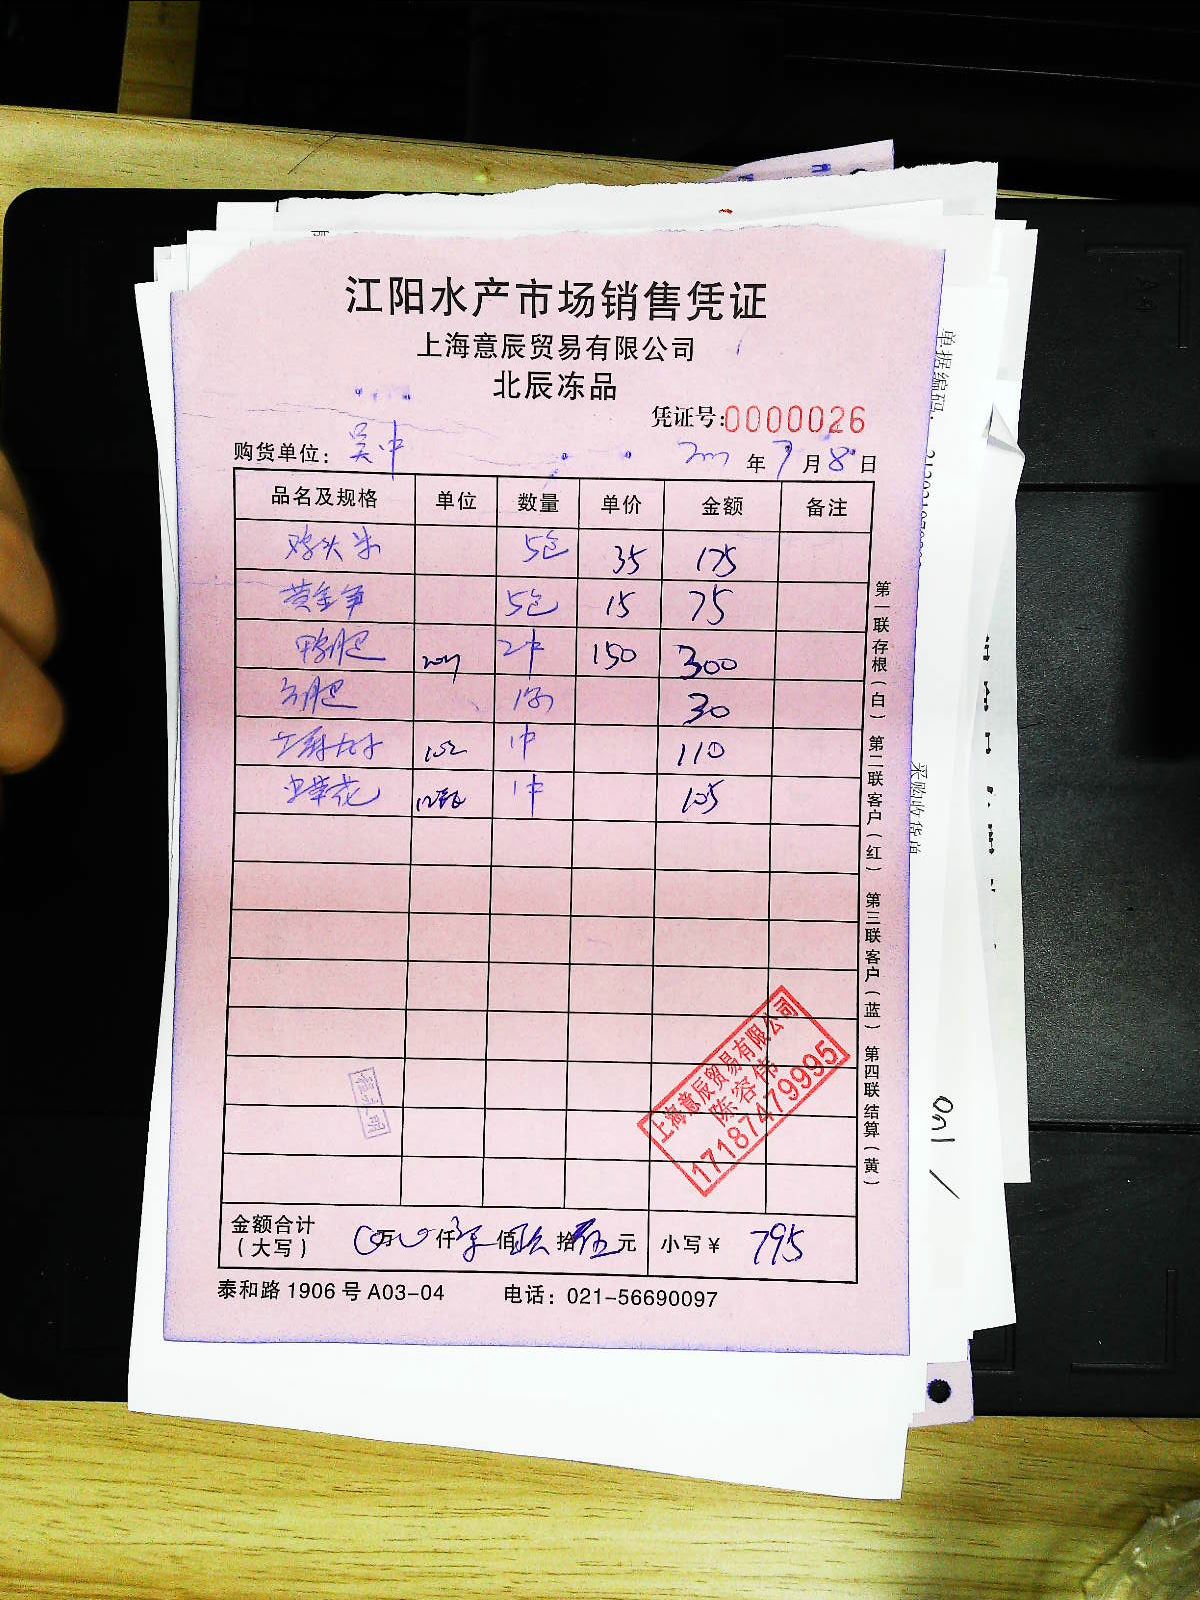 江阳水产市场销售凭证
上海意辰贸易有限公司
北辰冻品
凭证号:0000026
购货单位: 吴中 年 7 月 8 日
品名及规格 单位 数量 单价 金额 备注
鸡头米 5包 35 175
黄金 5包 15 75
鸭肥 2件 150 300
肥 30
1件 110
虫草花 1件 105
金额合计
(大写) 万 仟 柒 佰 玖 拾 伍 元 小写¥ 795
泰和路1906号A03-04 电话: 021-56690097
第一联存根(白) 第二联客户(红) 第三联客户(蓝) 第四联结算(黄)
上海意辰贸易有限公司
陈容伟
17187479995
单据编码:
采购收货单